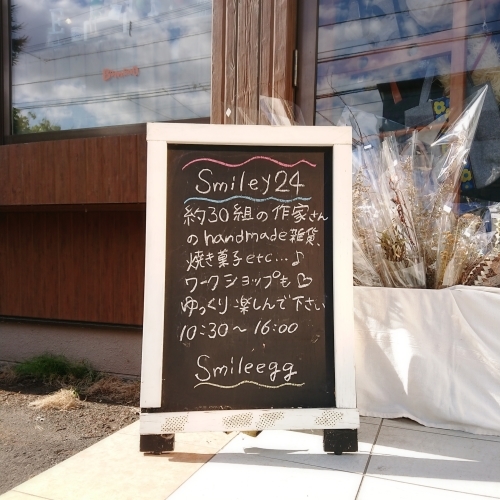 Smiley24
約30組の作家さん
のhandmade雑貨、
焼き菓子etc...♪
ワークショップも♡
ゆっくり楽しんで下さい
10:30～16:00
Smileegg